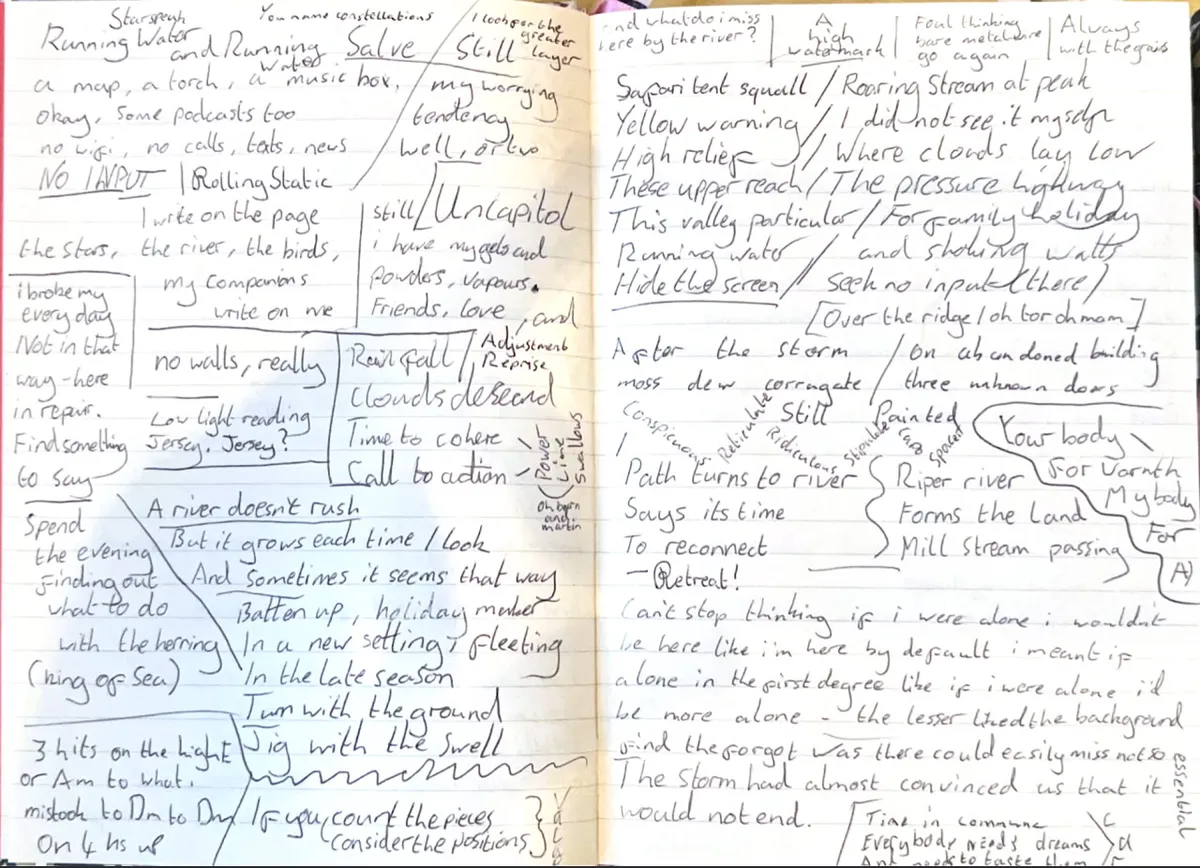 Starspeak
You name constellations
Running Water
and Running
Water
Salve
a map, a torch, a music box,
okay, some podcasts too
no wifi, no calls, texts, news
NO INPUT | Rolling Static
I look for the
greater
layer
Still
my worrying
tendency
well, or two
I write on the page
the stars, the river, the birds,
my companions
write on me
still / Uncapitol
i have my gels and
powders, vapours.
Friends, love, and
i broke my
every day
Not in that
way - here
in repair.
Find something
to say
no walls, really
Low light reading
Jersey. Jersey?
Rainfall / Adjustment
Reprise
Clouds descend
Time to cohere
Call to action
(Power
Line
Swallows
oh barn
and
martin
Spend
the evening
finding out
what to do
with the herring
(king of sea)
A river doesn't rush
But it grows each time I look
And sometimes it seems that way
Batten up, holiday maker
In a new setting, fleeting
In the late season
Turn with the ground
Jig with the swell
3 hits on the hight
or Am to what.
mistook to Dm to Dm
On 4 hs up
If you count the pieces
Consider the positions
and what do i miss
here by the river?
A
high
watermark
Foul thinking
bare metal
go again
Always
with the grais
Safari tent squall / Roaring Stream at peak
Yellow warning / I did not see it myself
High relief / Where clouds lay low
These upper reach / The pressure highway
This valley particular / For family holiday
Running water / and showing walls
Hide the screen / Seek no input (there)
[Over the ridge / oh tor oh mam]
After the storm / On abandoned building
moss dew corrugate / three unknown doors
Conspicuous
Reticulate
Still
Ridiculous
Painted
spaced
I
Path turns to river
Says its time
To reconnect
- Retreat!
Riper river
Forms the Land
Mill Stream passing
Your body
For warmth
My body
For
A)
Can't stop thinking if i were alone i wouldn't
be here like i'm here by default i meant if
alone in the first degree like if i were alone i'd
be more alone - the lesser liked the background
find the forgot was there could easily miss not so
essential
The storm had almost convinced us that it
would not end.
Time in commune
Everybody needs dreams
And needs to taste them